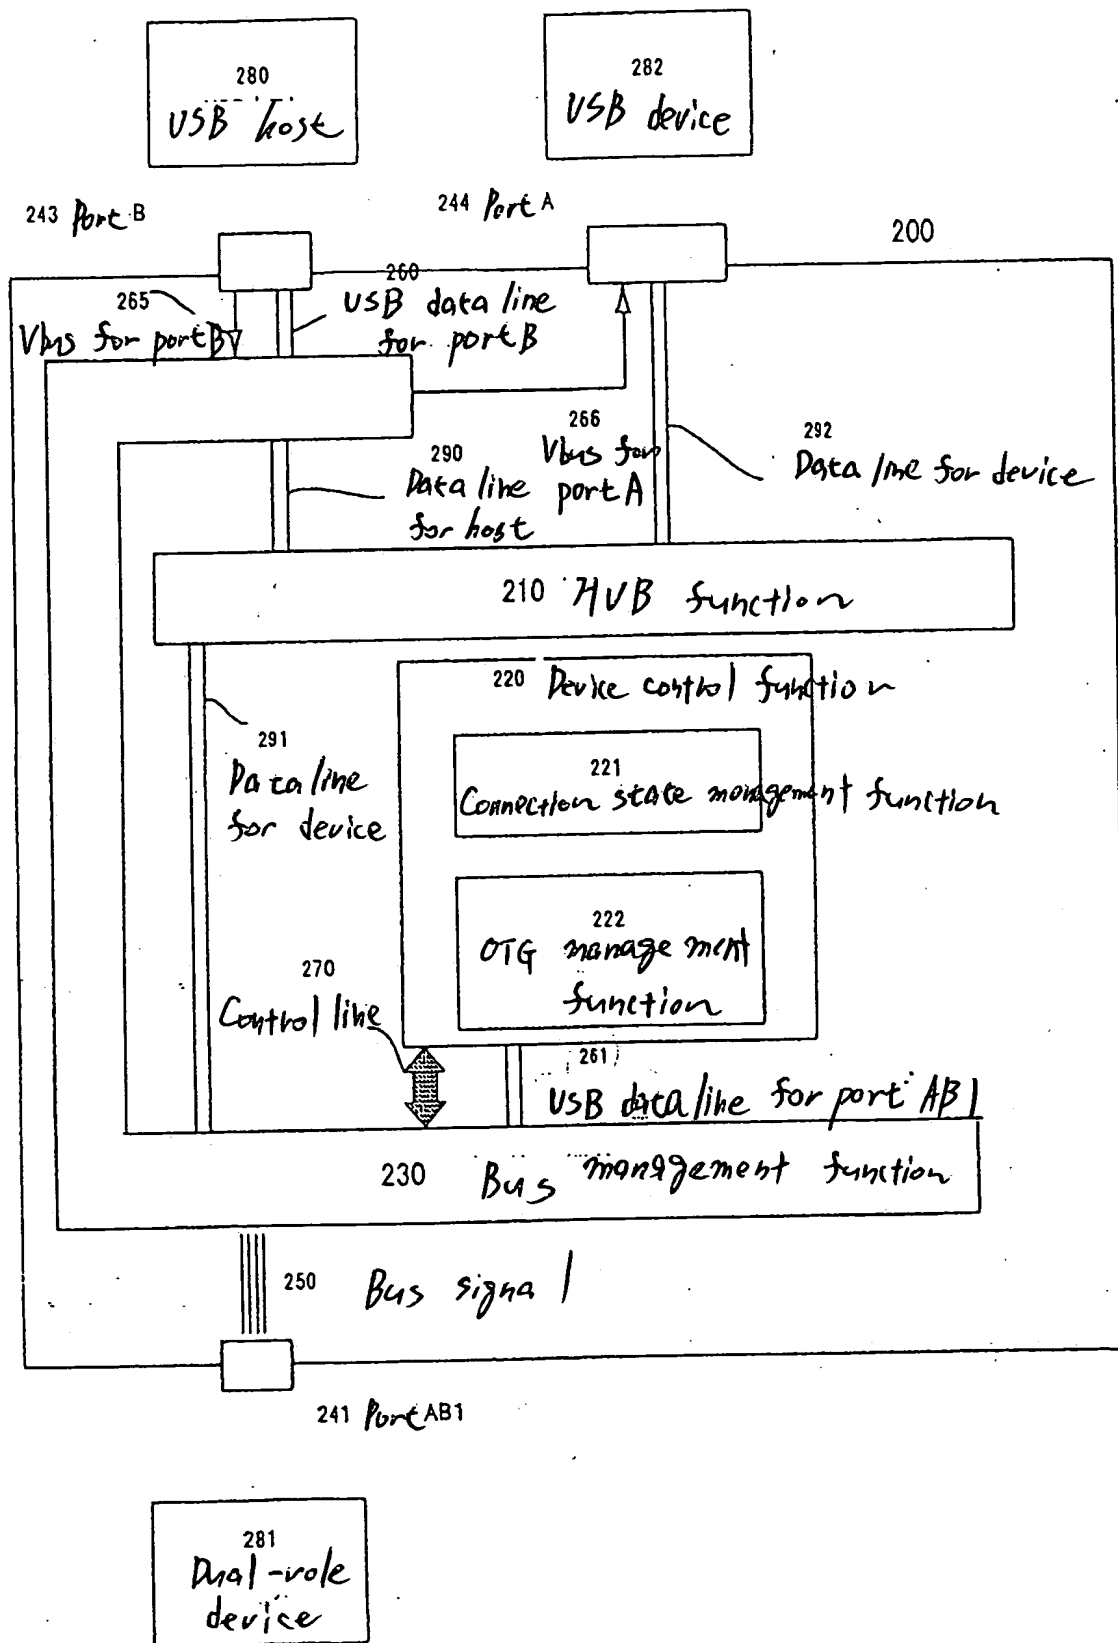 280
USB host
282
USB device
243 Port B
244 Port A
200
265
Vbus for port B
260
USB data line
for port B
266
Vbus for
port A
290
Data line
for host
292
Data line for device
210 HUB function
220 Device control function
221
Connection state management function
291
Data line
for device
222
OTG management
function
270
Control line
261
USB data line for port AB1
230 Bus management function
250 Bus signal
241 Port AB1
281
Dual-role
device